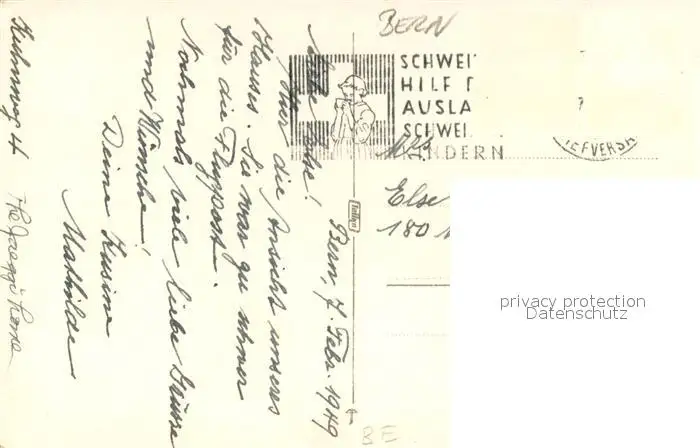 BERN
SCHWEI
HILF
AUSLA
SCHWEI
KINDERN
IEFVERSA
Mrs
Else
180
Bern, 7. Febr. 1949
Liebe Else!
Hier die Ansicht unseres
Hauses. Sie war zu schwer
für die Flugpost.
Nochmals viele liebe Grüsse
und Wünsche!
Deine Kusine
Mathilde
4
The Jaeggi home
BE
privacy protection
Datenschutz